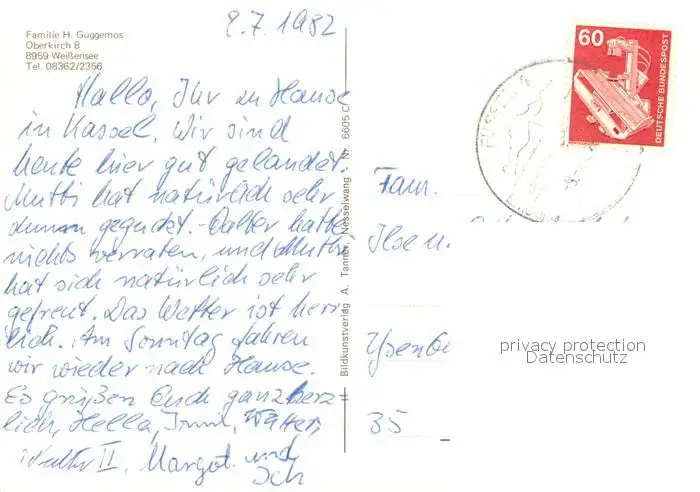 Familie H. Guggemos
Oberkirch 8
8959 Weißensee
Tel. 08362/2356
8.7.1982
Hallo, Ihr zu Hause
in Kassel. Wir sind
heute hier gut gelandet
Mutti hat natürlich sehr
dumm geguckt. - Walter hatte
nichts verraten, und Mutti
hat sich natürlich sehr
gefreut. Das Wetter ist herr
lich. Am Sonntag fahren
wir wieder nach Hause.
Es grüßen Euch ganz herz
lich, Hella, Irmi, Walter,
Walter II, Margot und
Ich
Bildkunstverlag A. Tanner, Nesselwang · Nr. 6605 C
60
DEUTSCHE BUNDESPOST
FÜSSEN
Fam.
Ilse u.
Ysenbu
35
privacy protection
Datenschutz